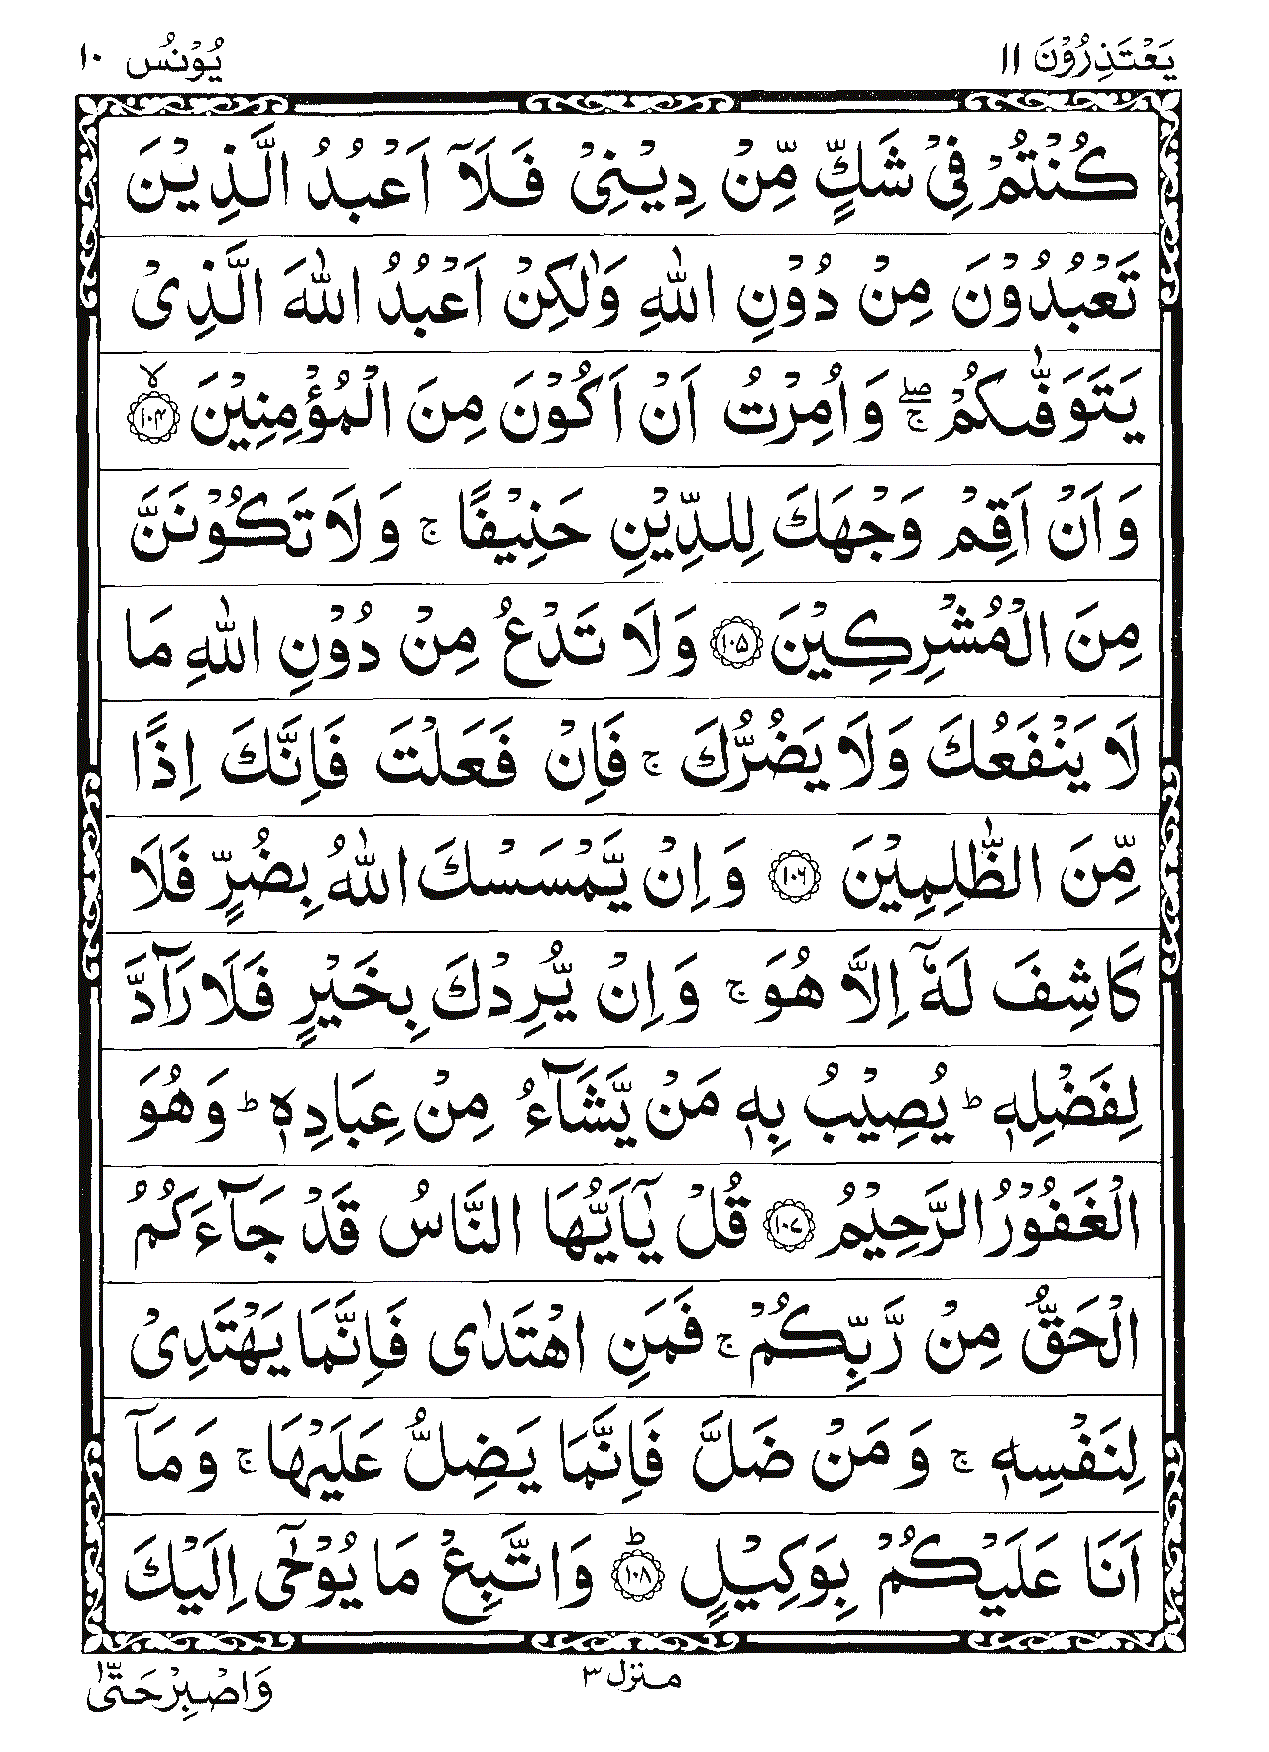 يَعْتَذِرُوْنَ ١١
يُوْنُسُ ١٠
كُنْتُمْ فِيْ شَكٍّ مِّنْ دِيْنِيْ فَلَآ اَعْبُدُ الَّذِيْنَ
تَعْبُدُوْنَ مِنْ دُوْنِ اللّٰهِ وَلٰكِنْ اَعْبُدُ اللّٰهَ الَّذِيْ
يَتَوَفّٰىكُمْ ۚۖ وَاُمِرْتُ اَنْ اَكُوْنَ مِنَ الْمُؤْمِنِيْنَ ۙ﴿۱۰۴﴾
وَاَنْ اَقِمْ وَجْهَكَ لِلدِّيْنِ حَنِيْفًا ۚ وَلَا تَكُوْنَنَّ
مِنَ الْمُشْرِكِيْنَ ﴿۱۰۵﴾ وَلَا تَدْعُ مِنْ دُوْنِ اللّٰهِ مَا
لَا يَنْفَعُكَ وَلَا يَضُرُّكَ ۚ فَاِنْ فَعَلْتَ فَاِنَّكَ اِذًا
مِّنَ الظّٰلِمِيْنَ ﴿۱۰۶﴾ وَاِنْ يَّمْسَسْكَ اللّٰهُ بِضُرٍّ فَلَا
كَاشِفَ لَهٗٓ اِلَّا هُوَ ۚ وَاِنْ يُّرِدْكَ بِخَيْرٍ فَلَا رَآدَّ
لِفَضْلِهٖ ؕ يُصِيْبُ بِهٖ مَنْ يَّشَآءُ مِنْ عِبَادِهٖ ؕ وَهُوَ
الْغَفُوْرُ الرَّحِيْمُ ﴿۱۰۷﴾ قُلْ يٰٓاَيُّهَا النَّاسُ قَدْ جَآءَكُمُ
الْحَقُّ مِنْ رَّبِّكُمْ ۚ فَمَنِ اهْتَدٰى فَاِنَّمَا يَهْتَدِيْ
لِنَفْسِهٖ ۚ وَمَنْ ضَلَّ فَاِنَّمَا يَضِلُّ عَلَيْهَا ۚ وَمَآ
اَنَا عَلَيْكُمْ بِوَكِيْلٍ ؕ﴿۱۰۸﴾ وَاتَّبِعْ مَا يُوْحٰٓى اِلَيْكَ
منزل ٣
وَاصْبِرْ حَتّٰى